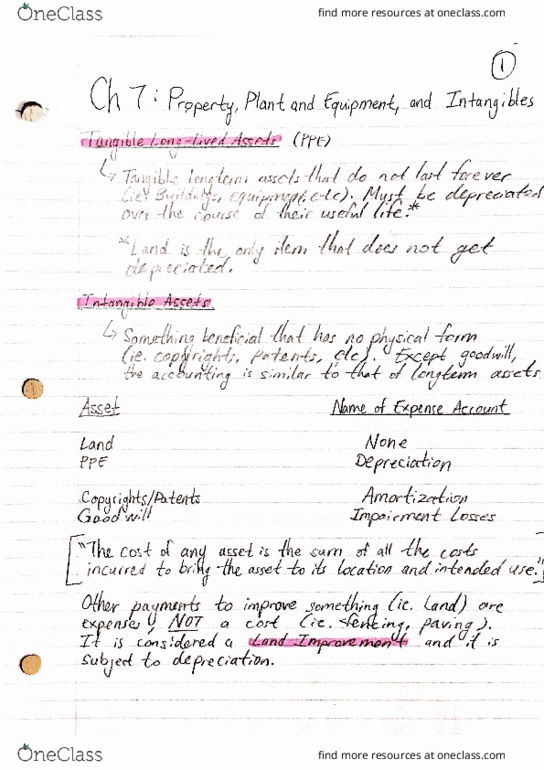 OneClass find more resources at oneclass.com
1
Ch 7: Property, Plant and Equipment, and Intangibles
Tangible Long-lived Assets (PPE)
↳ Tangible longterm assets that do not last forever
(ie. Buildings, equipment, etc). Must be depreciated
over the course of their useful life.*
*Land is the only item that does not get
depreciated.
Intangible Assets
↳ Something beneficial that has no physical form
(ie. copyrights, patents, etc). Except goodwill,
the accounting is similar to that of longterm assets.
Asset Name of Expense Account
Land None
PPE Depreciation
Copyrights/Patents Amortization
Goodwill Impairment Losses
["The cost of any asset is the sum of all the costs
incurred to bring the asset to its location and intended use."]
Other payments to improve something (ie. land) are
expenses, NOT a cost (ie. fencing, paving).
It is considered a Land Improvement and it is
subject to depreciation.
OneClass find more resources at oneclass.com